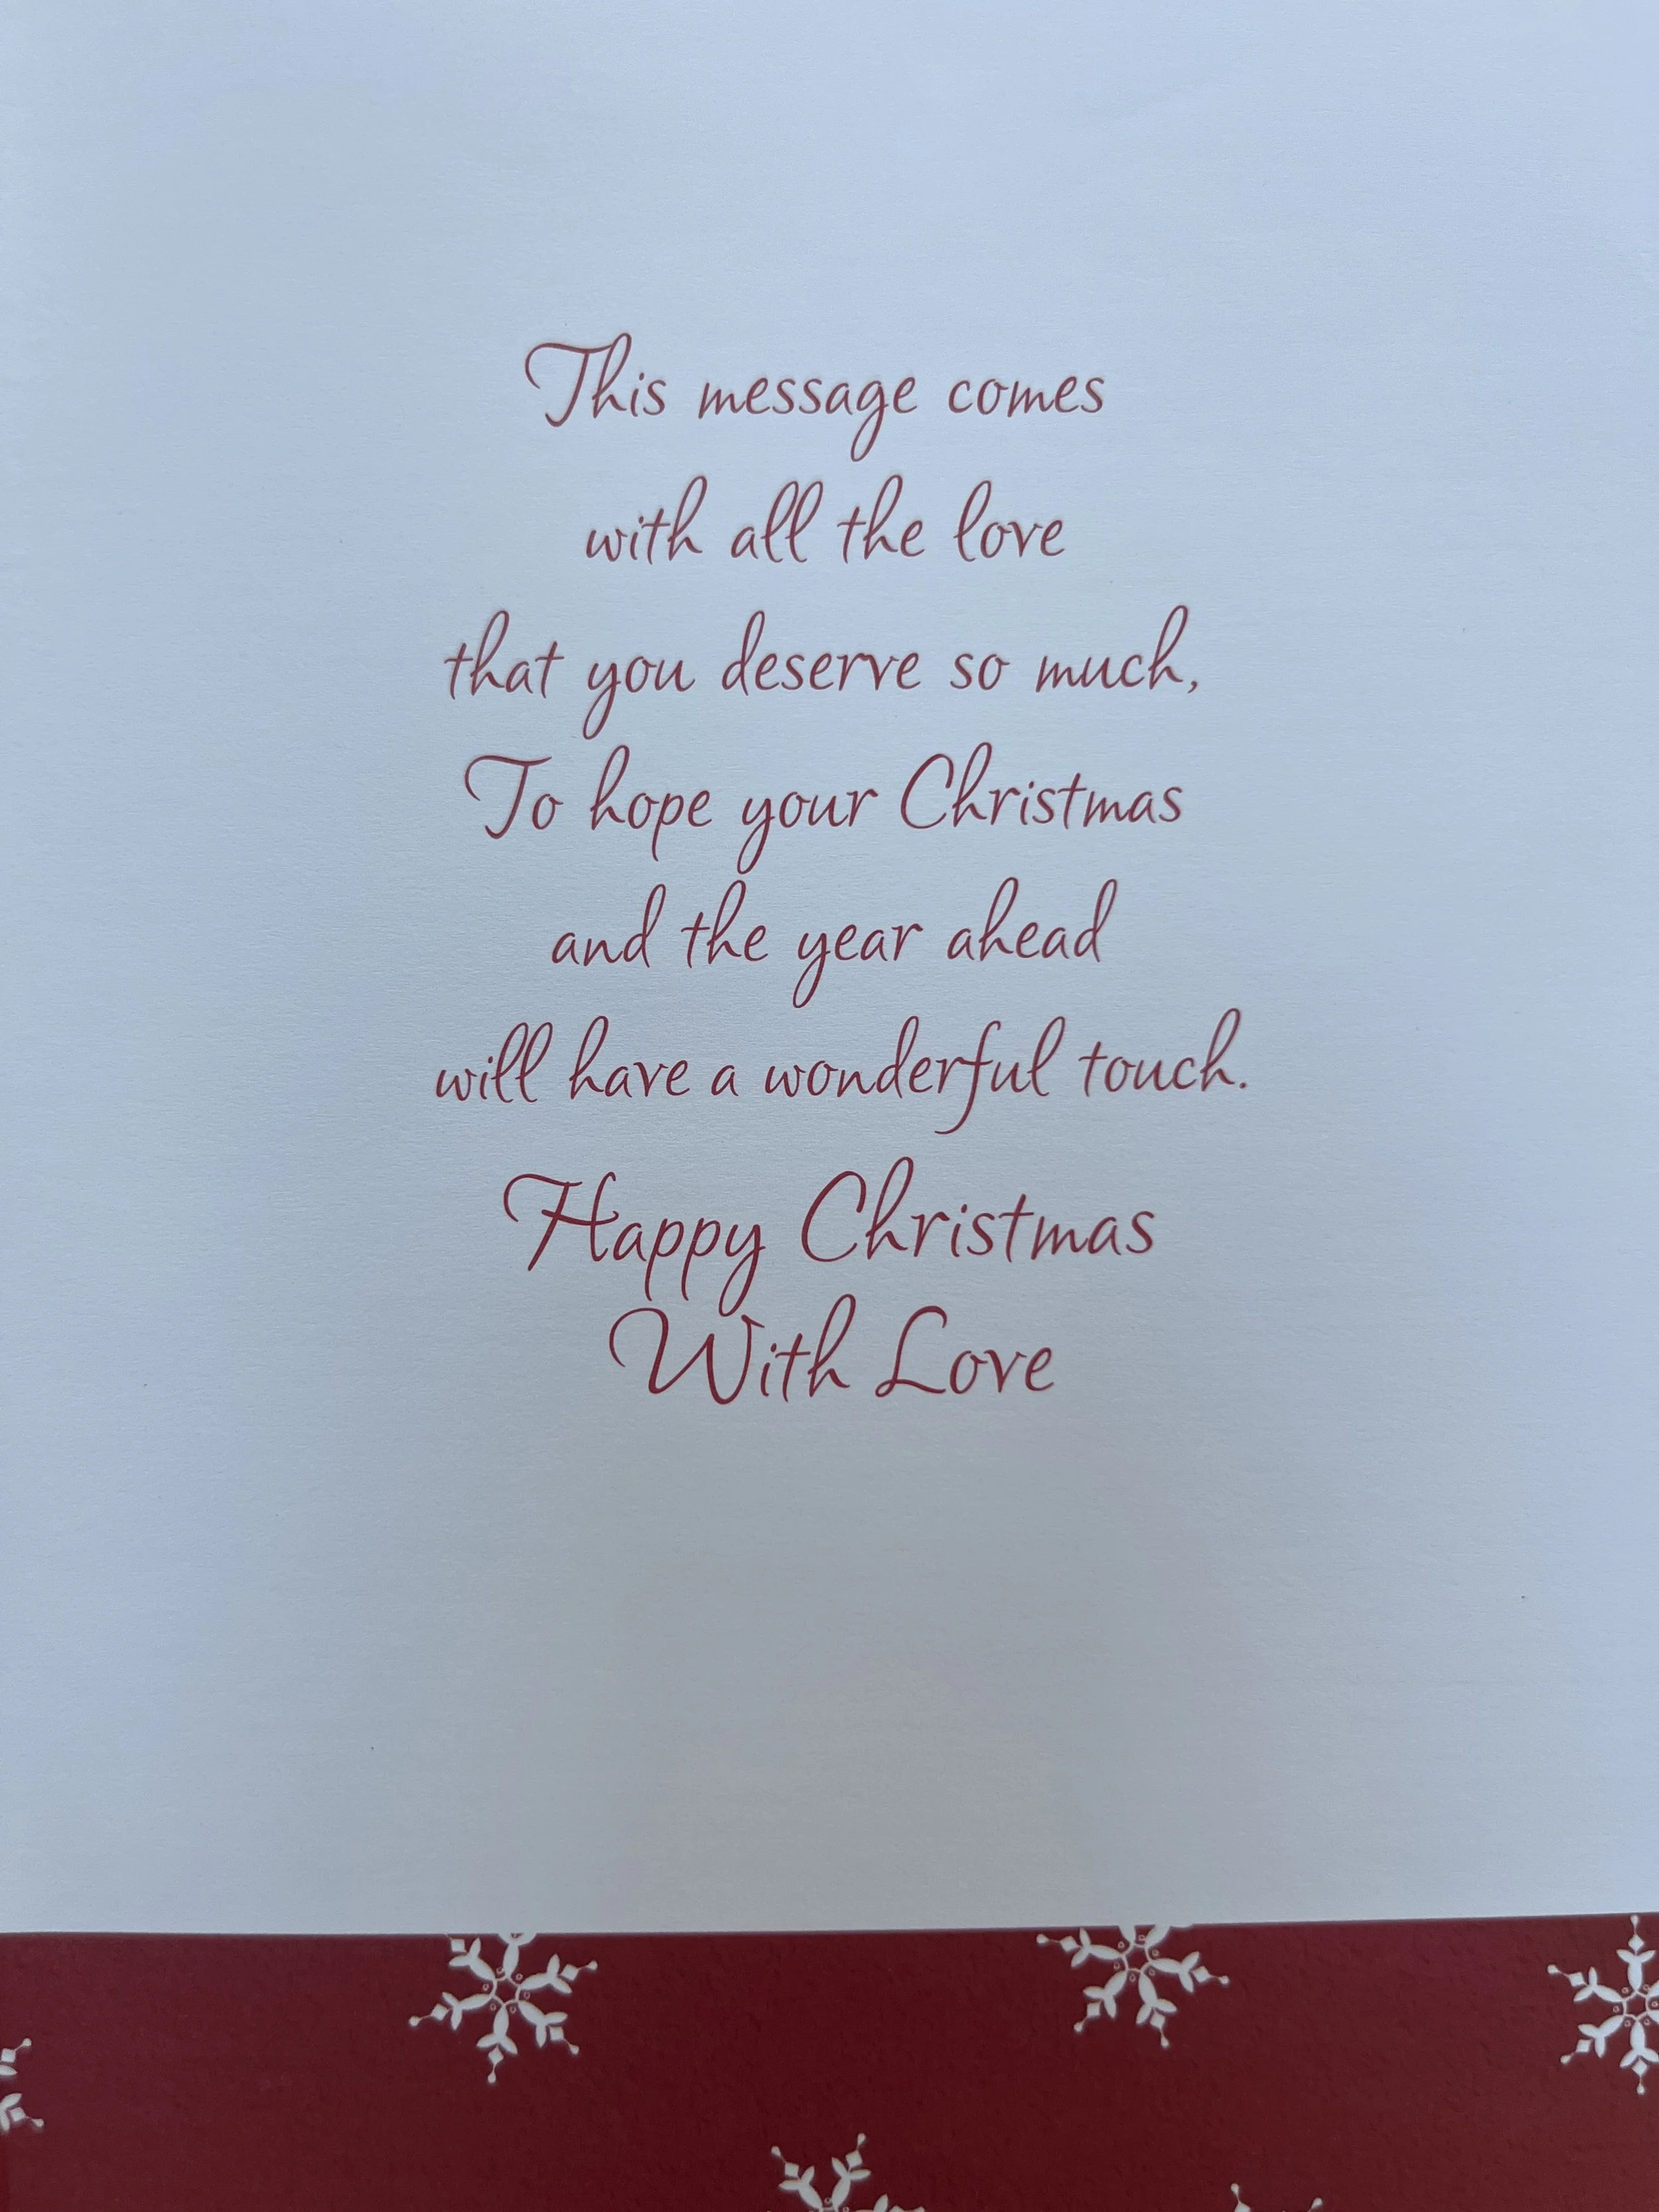 This message comes
with all the love
that you deserve so much,
To hope your Christmas
and the year ahead
will have a wonderful touch.
Happy Christmas
With Love